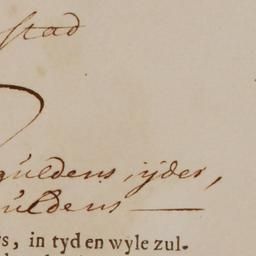 stad
guldens, yder,
guldens
rs, in tyd en wyle zul-